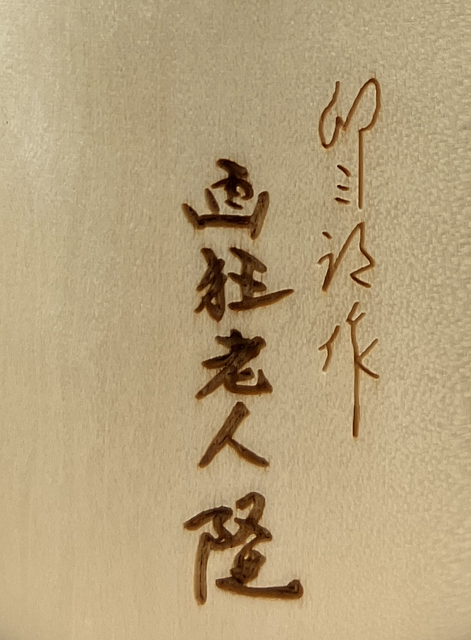 卯三郎作
画狂老人 隆